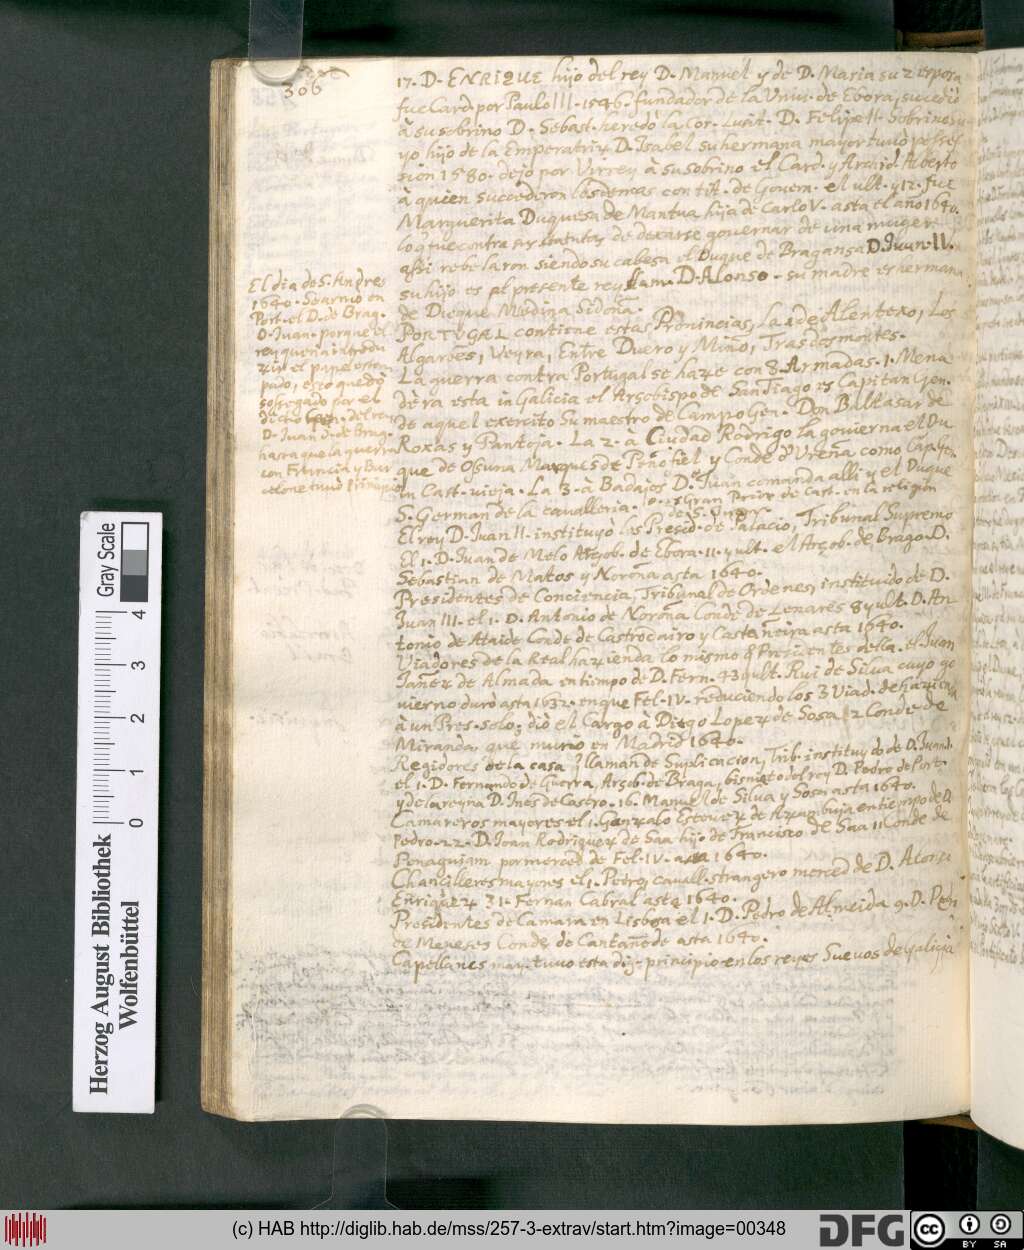 306
17. D. ENRIQUE hijo del rey D. Manuel y de D. Maria su 2 esposa
fue Card. por Paulo III. 1546. fundador de la Univ. de Ebora, sucediò
à su sobrino D. Sebast. heredò la Cor. Lusit. D. Felipe II. Sobrino su
yo hijo de la Emperatriz D. Isabel su hermana mayor tuvò posses
sion 1580. dejò por Virrey à su sobrino el Card. y Archid. Alberto
à quien succedieron los demas con tit. de Govern. el ult. y 12. fue
Marguerita Duquesa de Mantua hija de Carlo V. asta el año 1640.
lo q fue contra sus de dexarse governar de una muger
assi rebelaron siendo su cabesa el Duque de Bragansa D. Juan II.
su hijo es el presente rey llam. D. Alonso. su madre es hermana
de Dieque Medina Sidona.
PORTUGAL contiene estas Provincias, la 1 de Alentexo, Los
Algarbes, Veyra, Entre Duero y Miño, Tras dos montes.
La guerra contra Portugal se haze con 8. Armadas. 1. Mena
dera esta in Galicia el Arsobispo de San Tiago es Capitan Gen.
de aquel exercito Su maestro de Campo Gen. Don Baltasar de
Roxas y Pantoja. La 2. a Ciudad Rodrigo la governa el Du
que de Ossuna Marques de Peñofiel y Conde d'Ureña como Cap. Gen.
in Cast. vieja. La 3. à Badajos D. Juan comanda alli y el Duque
S. German de la cavalleria. o. es Gran Prior de Cast. en la religion
de S. Juan
El rey D. Juan II. instituyò los Presid. de Palacio, Tribunal Supremo
El 1. D. Juan de Melo Arçob. de Ebora. 11. y ult. el Arçob. de Braga. D.
Sebastian de Matos y Noroña asta 1640.
Presidentes de Conciencia, Tribunal de Ordenes, instituido de D.
Juan III. el 1. D. Antonio de Noroña Conde de Lenares 8 y ult. D. An
tonio de Ataide Conde de Castrodairo y Castañeira asta 1640.
Viadores de la Real hazienda lo mismo q Presidentes della. el Juan
Janez de Almada en tiempo de D. Fern. 43 y ult. Rui de Silva cuyo go
vierno durò asta 1632. en que Fel. IV. reduciendo los 3 Viad. de hazienda
à un Pres. solo; diò el Cargo à Diego Lopez de Sosa 2 Conde de
Miranda. que murio en Madrid 1640.
Regidores de la casa q llaman de Suplicacion, Trib. instituydo de D. Juan I.
el 1. D. Fernando de Guerra, Arçob. de Braga, bisnieto del rey D. Pedro de Port.
y de la reyna D. Ines de Castro. 16. Manuel de Silva y Sosa asta 1640.
Camareros mayores el 1. Gonzalo Estevez de en tiempo de D.
Pedro. 22. D. Joan Rodriguez de Saa hijo de Francisco de Saa 11 Conde de
Penaguiam por merced de Fel. IV. asta 1640.
Chancilleres mayores el 1. Petro, cavall. strangero merced de D. Alonso
Enriquez 31. Fernan Cabral asta 1640.
Presidentes de Camara en Lisboa el 1. D. Pedro de Almeida 9. D. Pedro
de Meneses Conde de Cantañede asta 1640.
Capellanes may. tuvo esta dig. principio en los reyes Suevos de galizia
El dia de S. Andres
1640. Se armò en
Port. el D. de Brag.
D. Juan. porque el
rey queria introdu
zir el papel estam
pado, esto quedò
sossegado por el
dicho del rey
D. Juan D. de Brag.
hasta que la guerra
con Francia y Bar
celone tuviò
Herzog August Bibliothek
Wolfenbüttel
Gray Scale
0 1 2 3 4
(c) HAB http://diglib.hab.de/mss/257-3-extrav/start.htm?image=00348
DFG
cc
BY SA